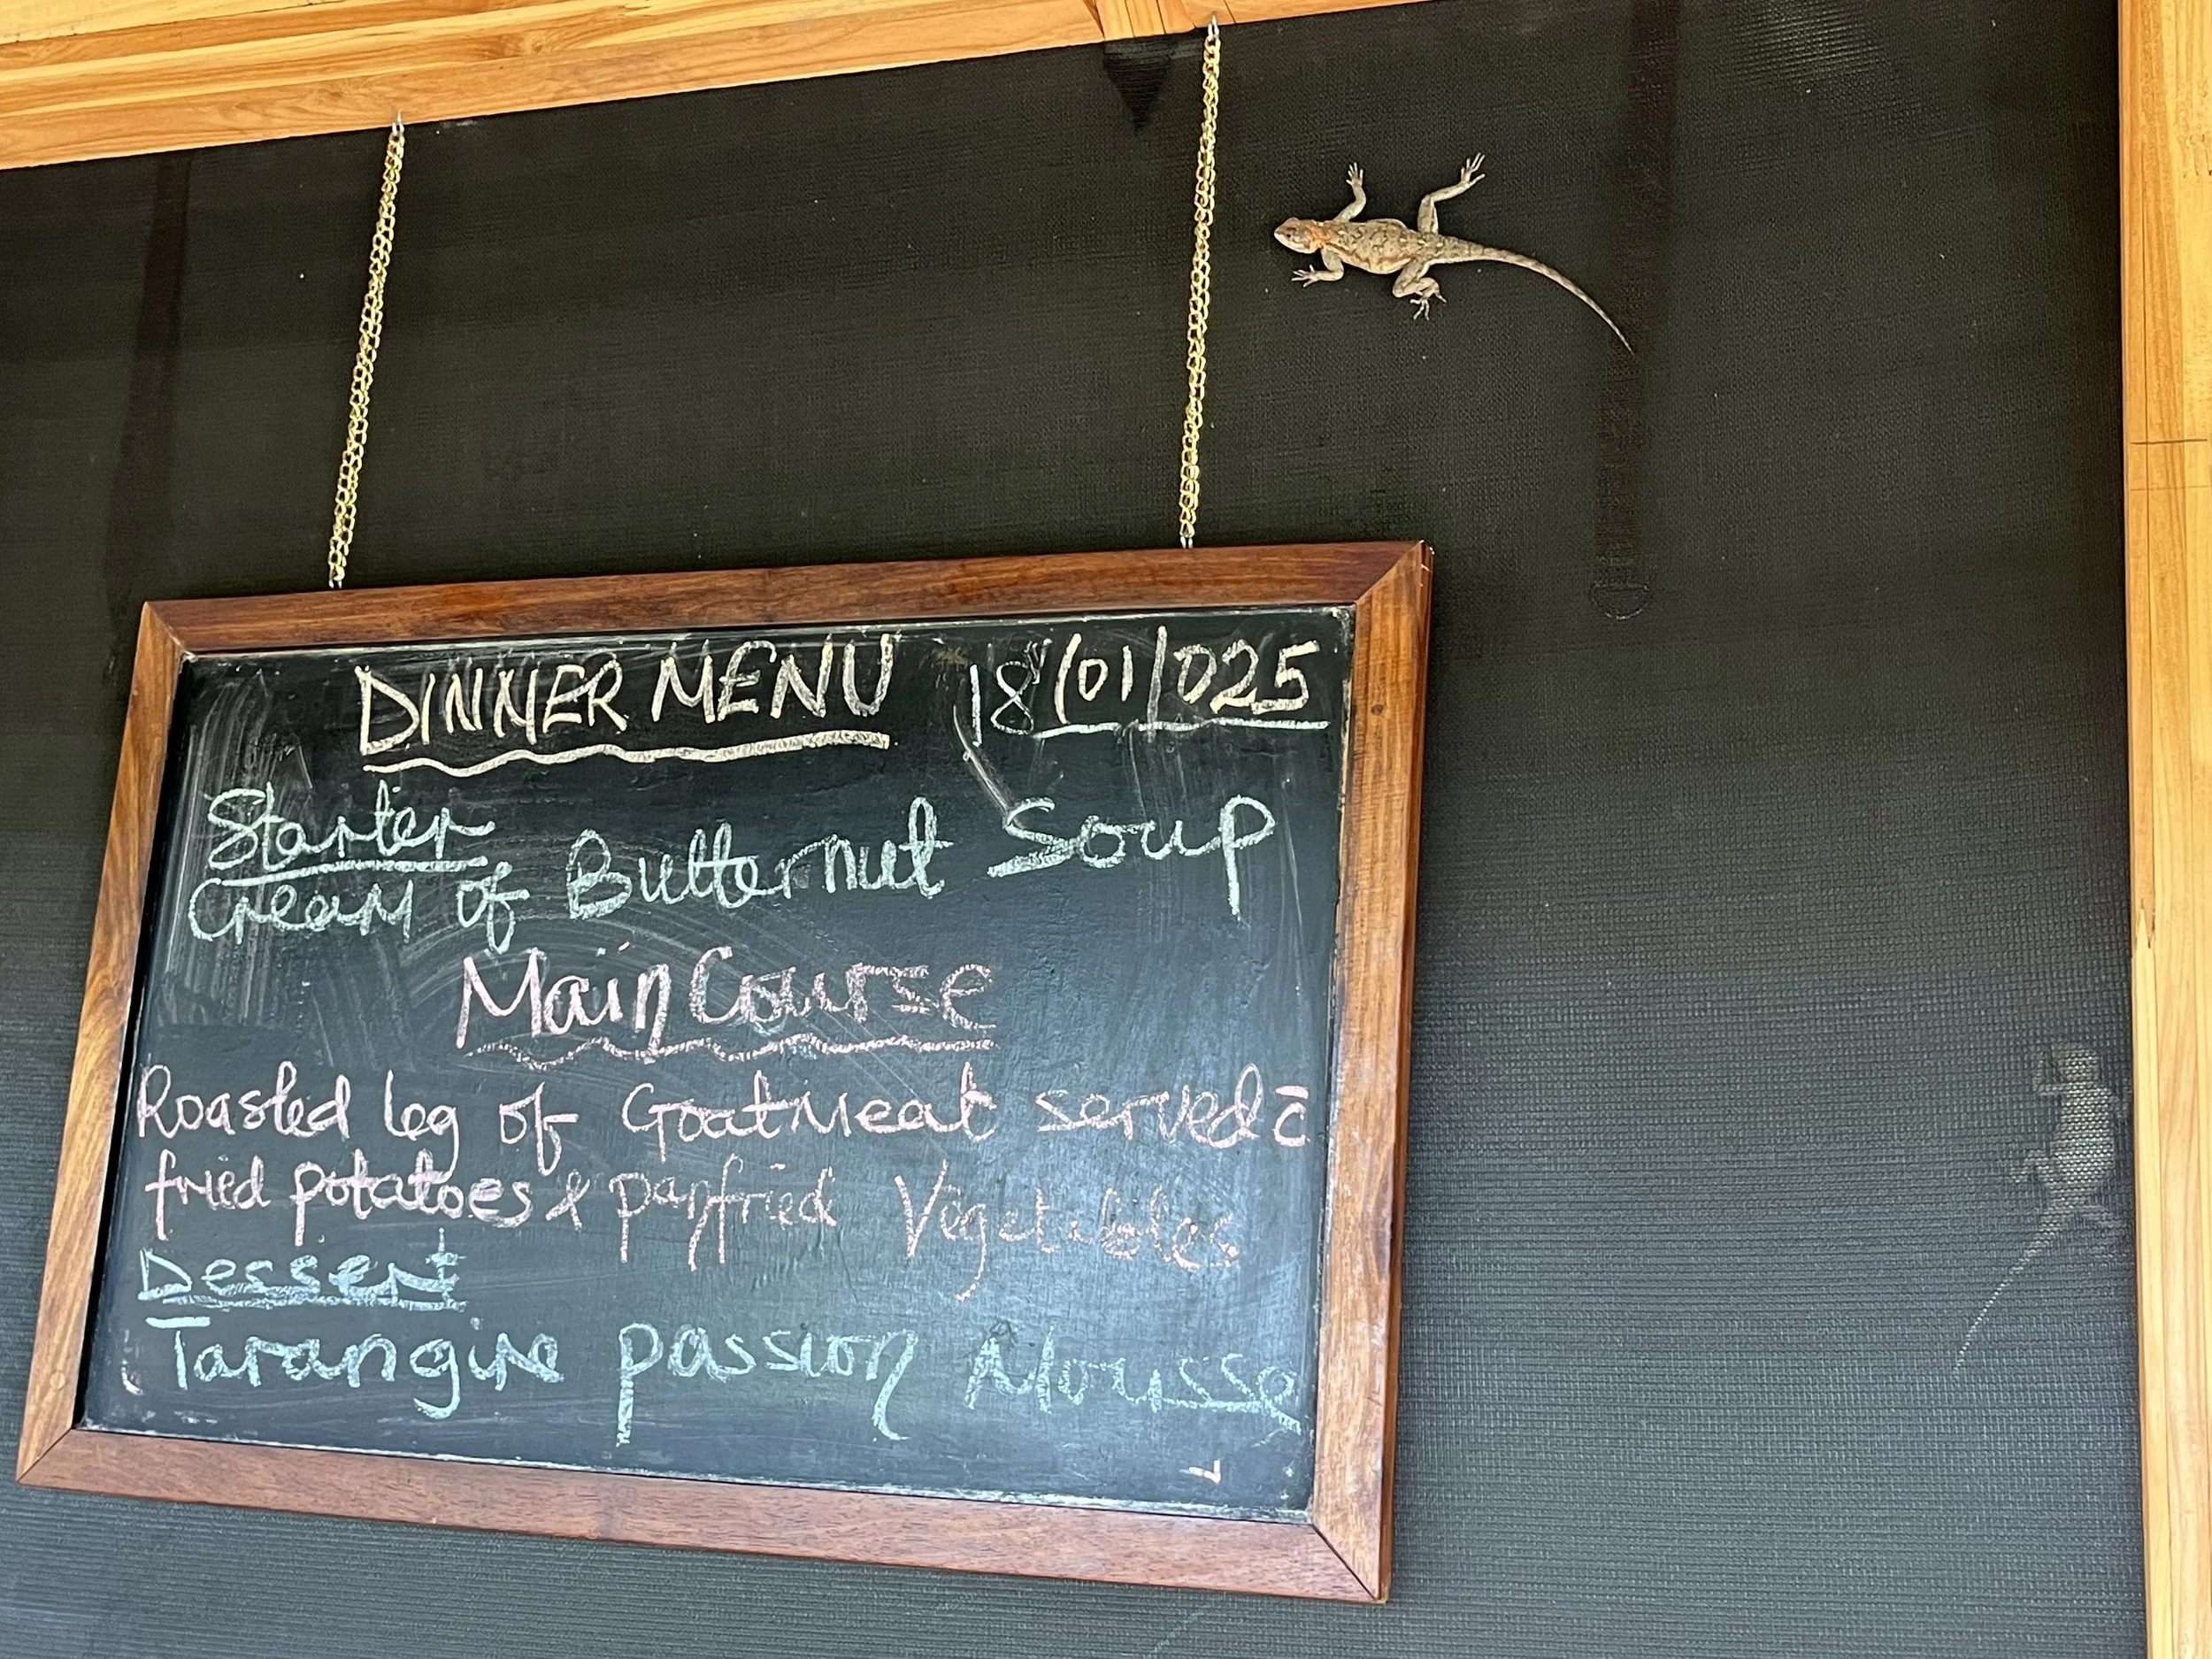 DINNER MENU 18/01/025
Starter
Cream of Butternut Soup
Main Course
Roasted leg of Goatmeat served c̄
fried potatoes & panfried Vegetables
Dessert
Tarangire passion Mousse